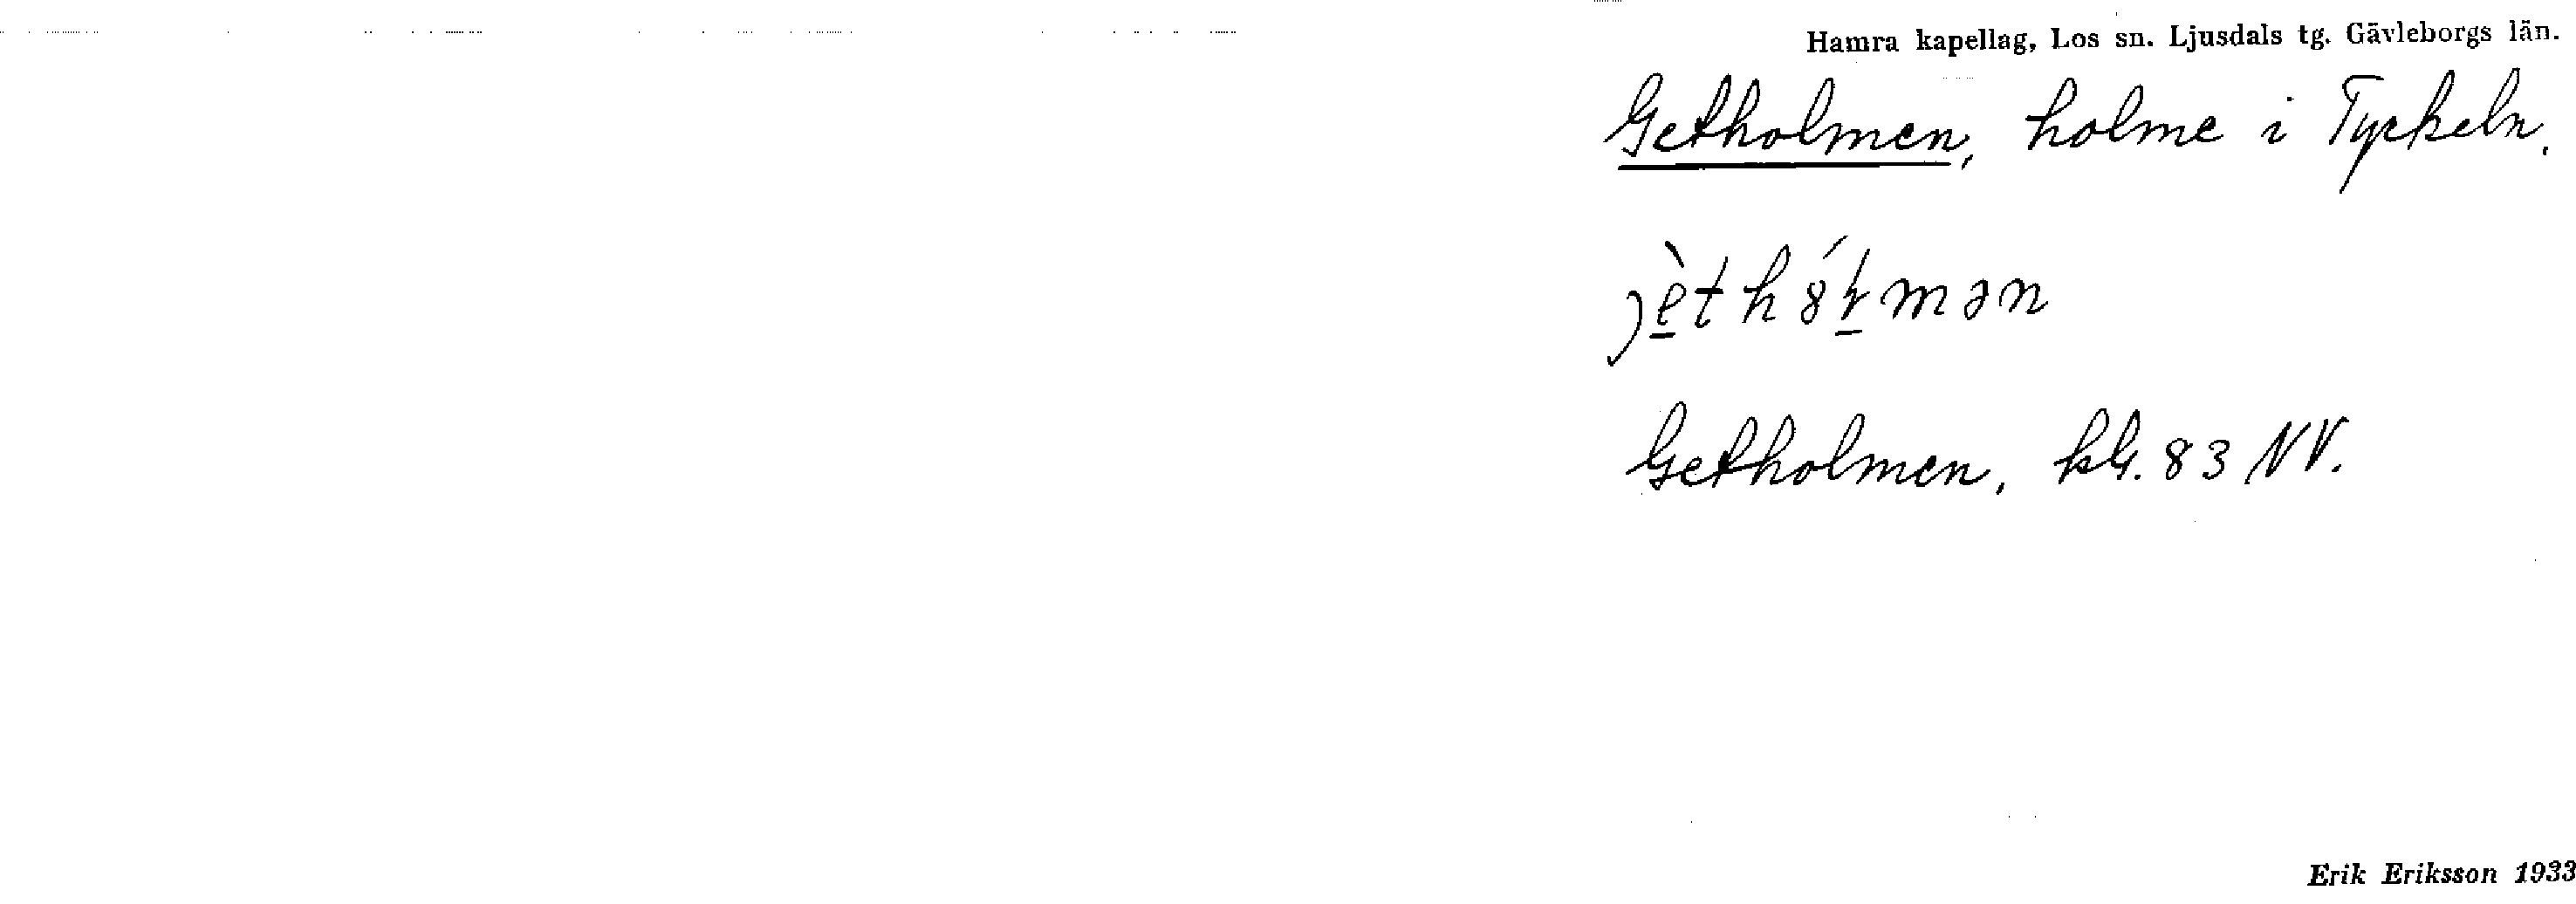 Hamra kapellag, Los sn. Ljusdals tg. Gävleborgs län.
Getholmen, holme i Tyckeln.
Getholmen, kbl. 83 NV.
Erik Eriksson 1933